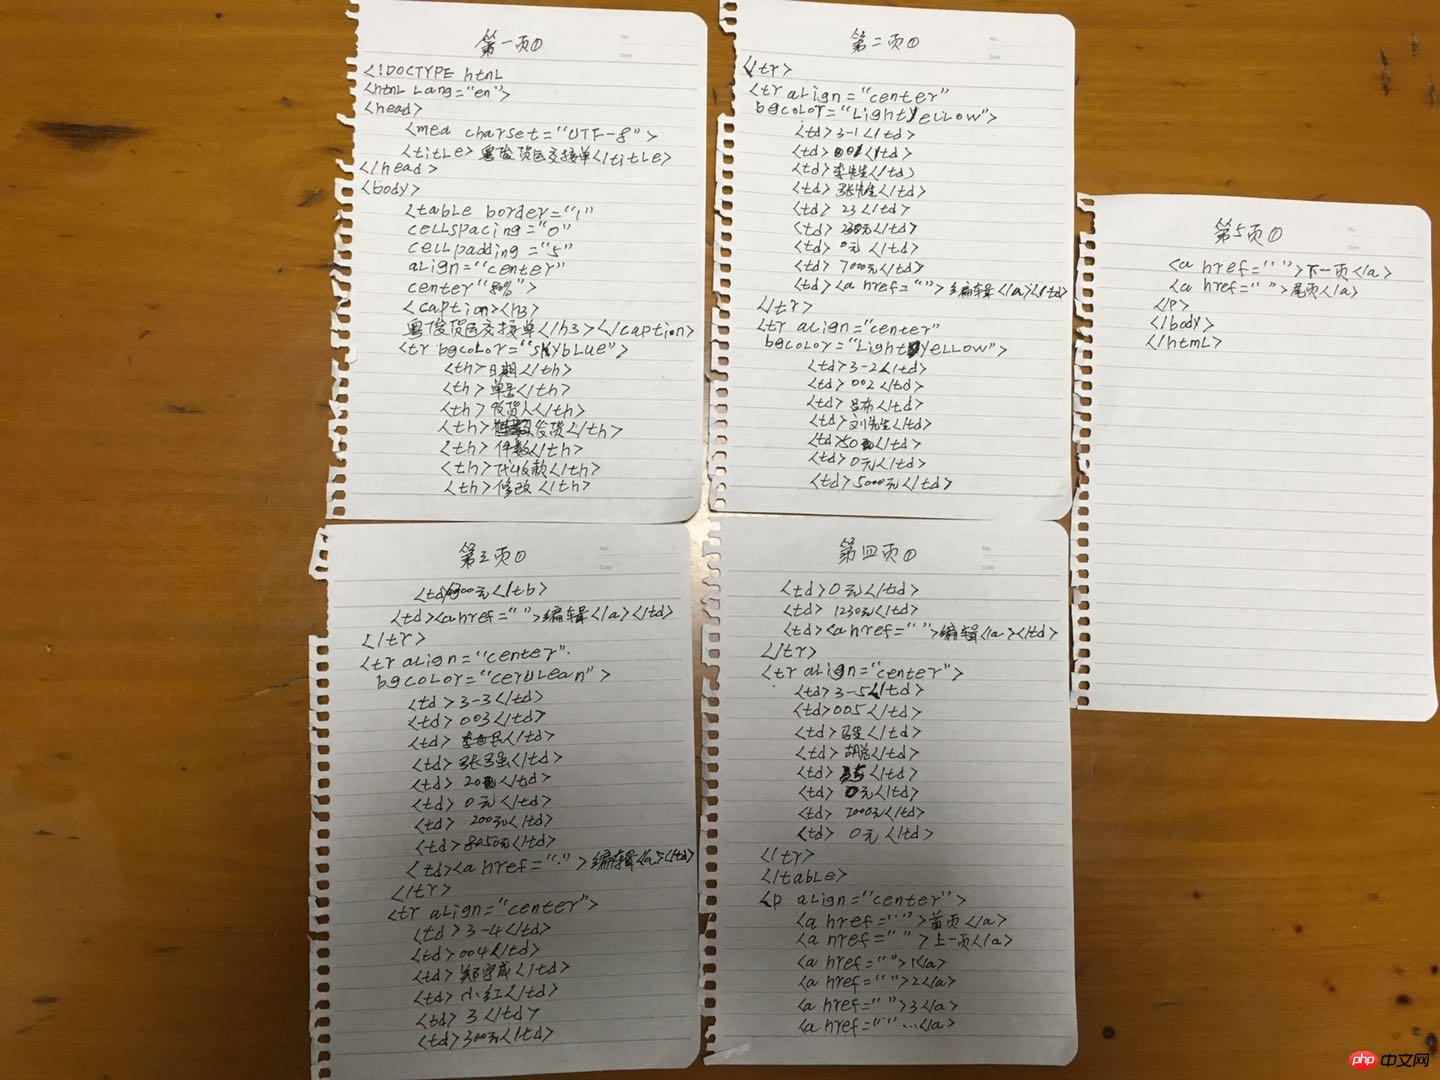 第一页①
<!DOCTYPE html
<html lang="en">
<head>
<mea charset="UTF-8">
<title>粤俊货运交接单</title>
</head>
<body>
<table border="1"
cellspacing="0"
cellpadding="5"
align="center"
center"80%">
<caption><h3>
粤俊货运交接单</h3></caption>
<tr bgcolor="skyblue">
<th>日期</th>
<th>单号</th>
<th>收货人</th>
<th>发货</th>
<th>件数</th>
<th>代收款</th>
<th>修改</th>
第二页①
</tr>
<tr align="center"
bgcolor="lightyellow">
<td>3-1</td>
<td>001</td>
<td>李先生</td>
<td>张先生</td>
<td>23</td>
<td>230元</td>
<td>0元</td>
<td>7000元</td>
<td><a href="">编辑</a></td>
</tr>
<tr align="center"
bgcolor="lightyellow">
<td>3-2</td>
<td>002</td>
<td>吕布</td>
<td>刘先生</td>
<td>50</td>
<td>0元</td>
<td>5000元</td>
第三页①
<td>00元</tb>
<td><a href="">编辑</a></td>
</tr>
<tr align="center"
bgcolor="cerulean">
<td>3-3</td>
<td>003</td>
<td>李世民</td>
<td>张子强</td>
<td>20</td>
<td>0元</td>
<td>200元</td>
<td>8050元</td>
<td><a href="">编辑</a></td>
</tr>
<tr align="center">
<td>3-4</td>
<td>004</td>
<td>郑宇成</td>
<td>小红</td>
<td>3</td>
<td>300元</td>
第四页①
<td>0元</td>
<td>1230元</td>
<td><a href="">编辑</a></td>
</tr>
<tr align="center">
<td>3-5</td>
<td>005</td>
<td></td>
<td>胡总</td>
<td></td>
<td>0元</td>
<td>2000元</td>
<td>0元</td>
</tr>
</table>
<p align="center">
<a href="">首页</a>
<a href="">上一页</a>
<a href="">1</a>
<a href="">2</a>
<a href="">3</a>
<a href="" ...</a>
第5页①
<a href="">下一页</a>
<a href="">尾页</a>
</p>
</body>
</html>
php 中文网